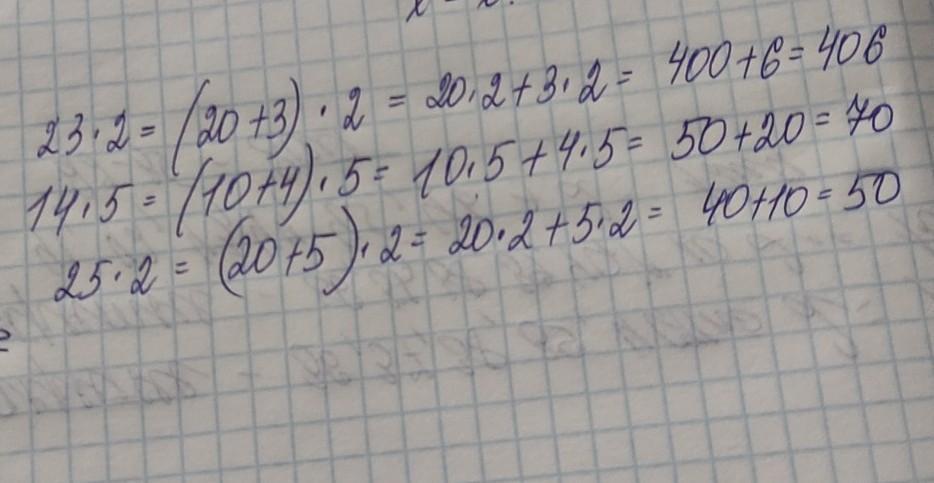 23·2 = (20+3)·2 = 20·2+3·2 = 400+6=406
14·5 = (10+4)·5 = 10·5+4·5 = 50+20=70
25·2 = (20+5)·2 = 20·2+5·2 = 40+10=50